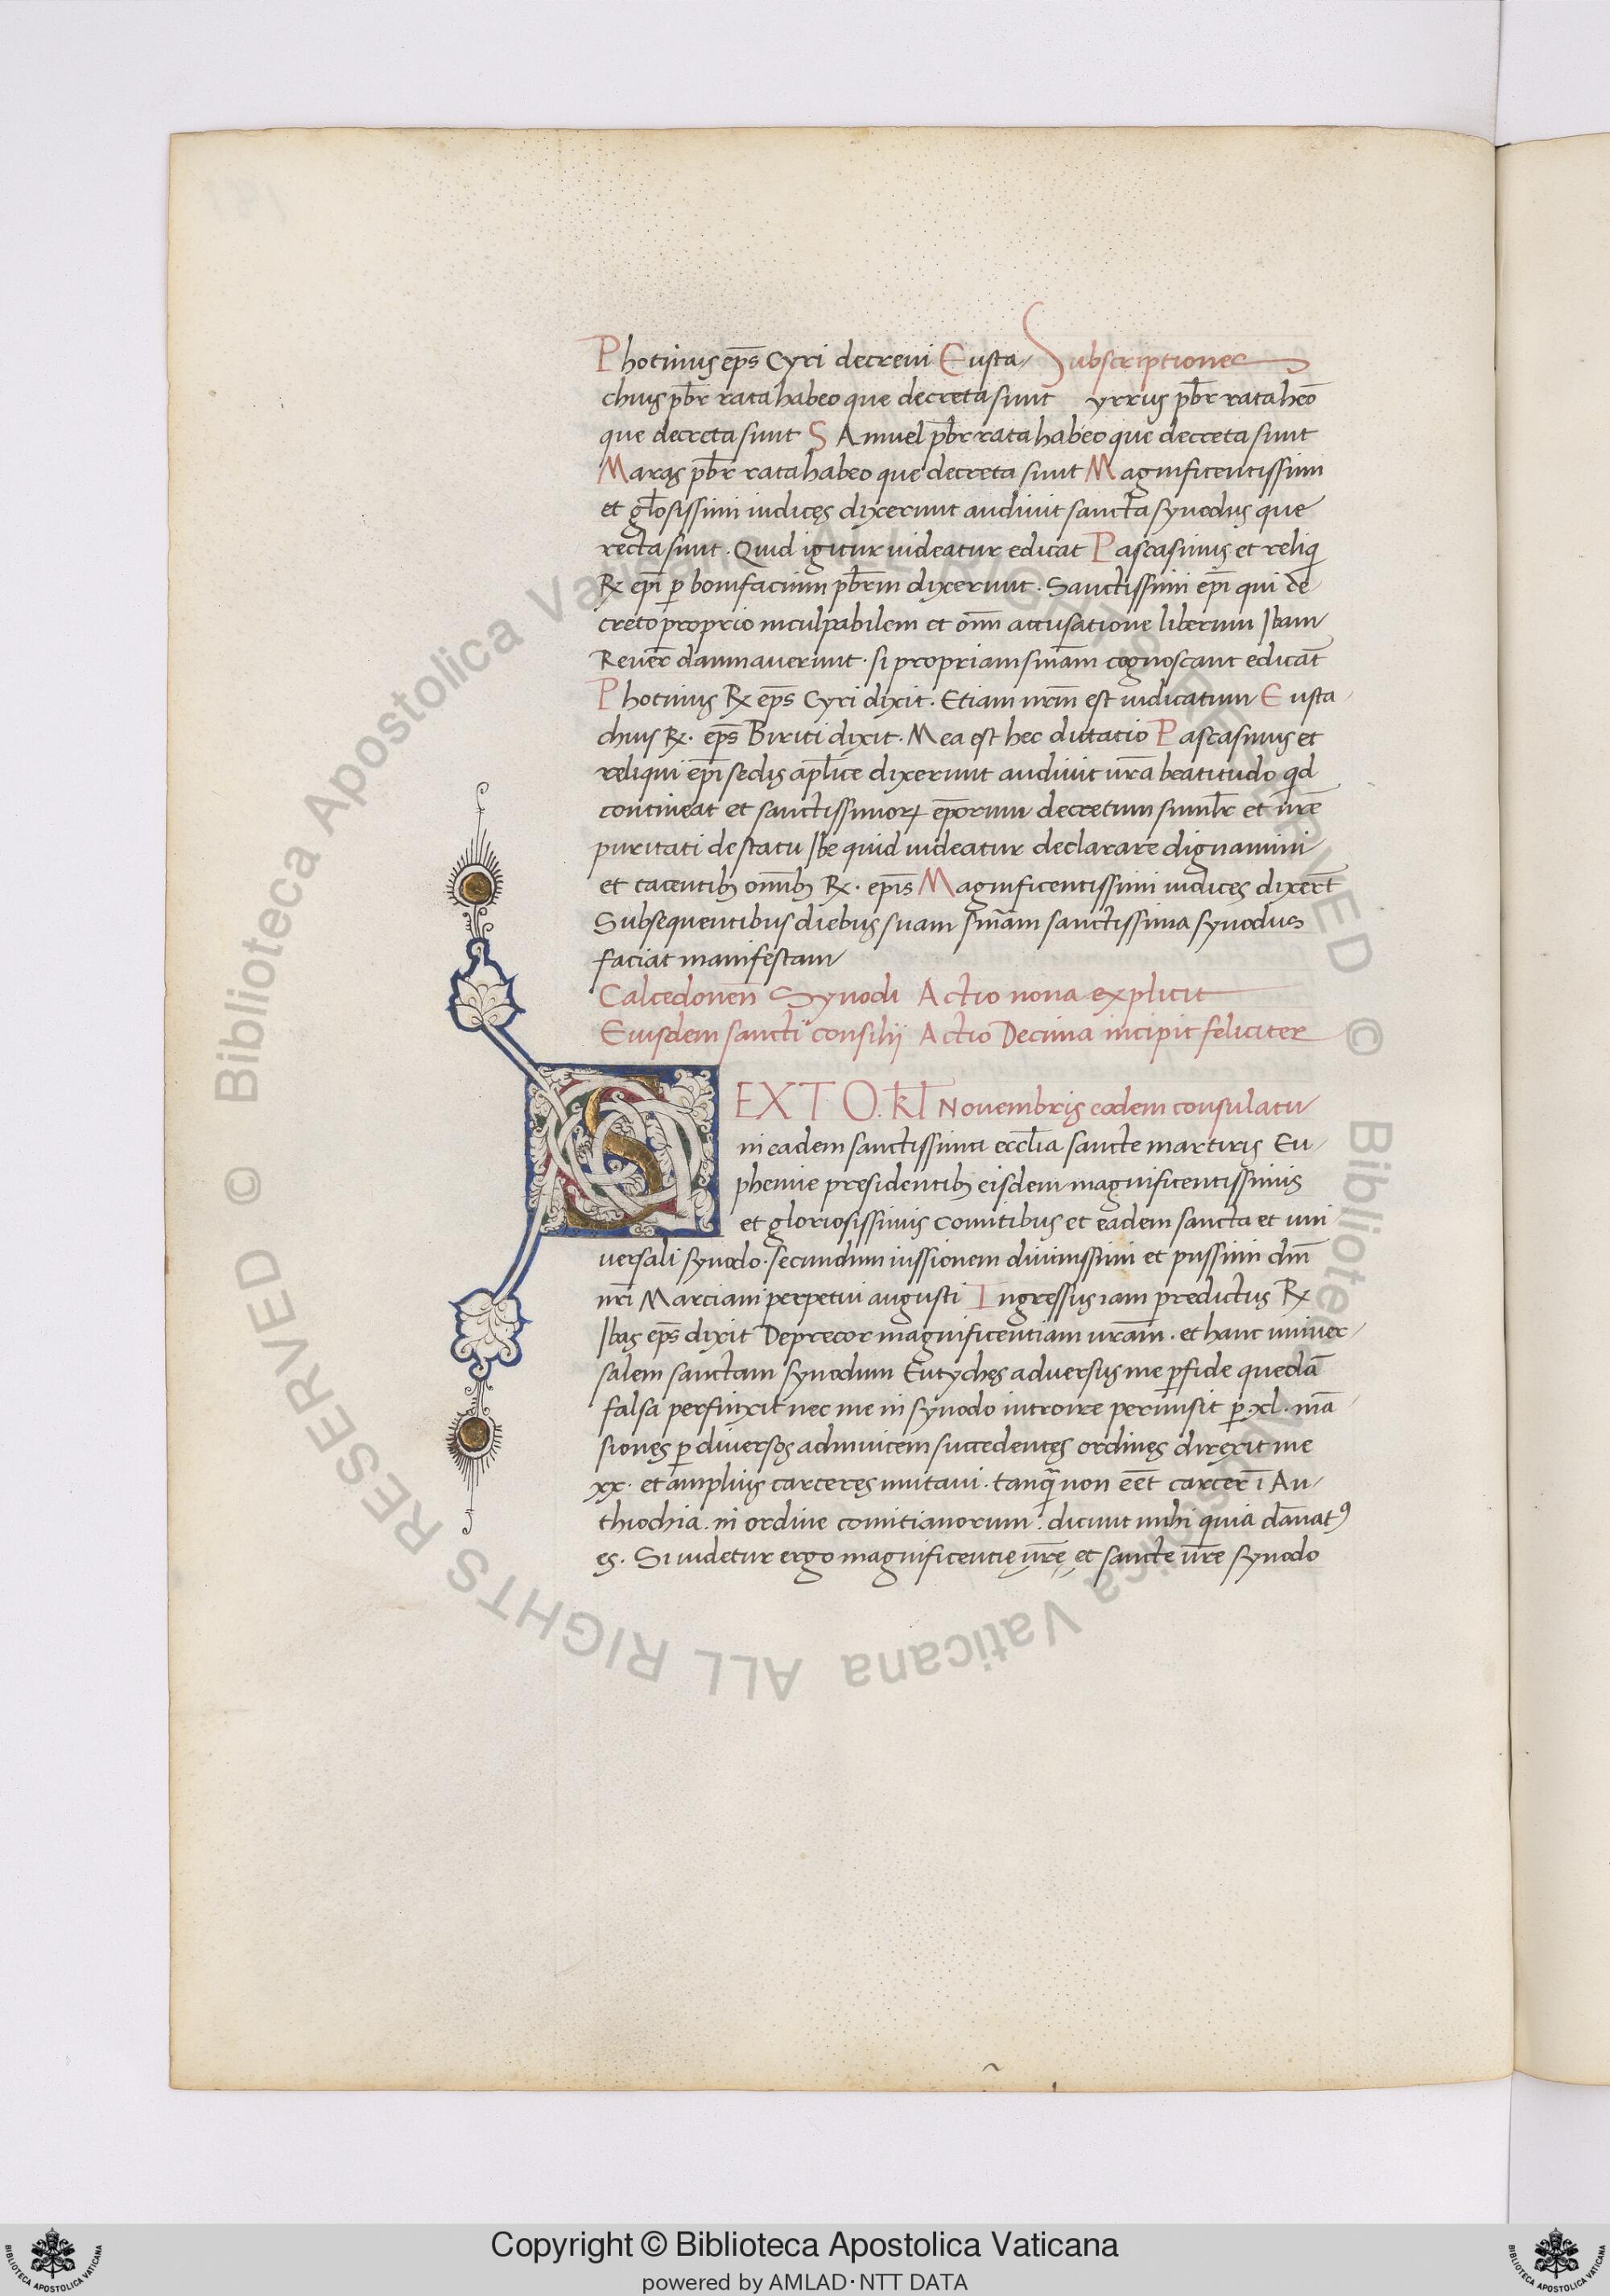 Photinus ep̄s Cyri decreui Eusta/ Subscriptiones
chius pb̄r rata habeo que decreta sunt yrrus pb̄r rata heō
que decreta sunt SAmuel pb̄r rata habeo que decreta sunt
Maras pb̄r rata habeo que decreta sunt Magnificentissimi
et gl̄osissimi iudices dixerunt audiuit sancta synodus que
recta sunt . Quid igitur uideatur edicat Pascasinus et reliq
R ep̄i p bonifacium pb̄rm dixerunt . Sanctissimi ep̄i qui de
creto proprio inculpabilem et om̄i accusatione liberum Ibam
Reuer̄ damnauerunt . si propriam sn̄iam cognoscant edicāt
Photinus R ep̄s Cyri dixit . Etiam nr̄m est iudicatum Eusta
chius R . ep̄s Biriti dixit . Mea est hec dictatio Pascasinus et
reliqui ep̄i sedis apl̄ice dixerunt audiuit ur̄a beatitudo qd
contineat et sanctissimoꝝ ep̄orum decretum simil̄r et ur̄e
puritati de statu Ibe quid uideatur declarare dignamini
et tacentib; om̄ib; R . ep̄is Magnificentissimi iudices dixer̄t
Subsequentibus diebus suam sn̄iam sanctissima synodus
faciat manifestam
Calcedonen̄ Synodi Actio nona explicit
Eiusdem sancti consilij Actio Decima incipit feliciter
SEXTO . kl̄ Nouembris eodem consulatu
in eadem sanctissima eccl̄ia sancte martiris Eu/
phemie presidentib; eisdem magnificentissimis
et gloriosissimis comitibus et eadem sancta et uni
uersali synodo . secundum iussionem diuinissimi et piissimi dn̄i
nr̄i Marciani perpetui augusti Ingressus iam predictus R
Ibas ep̄s dixit Deprecor magnificentiam ur̄am . et hanc uniuer/
salem sanctam synodum Eutyches aduersus me p fide quedā
falsa perfinxit nec me in synodo introire permisit p . xl . mā
siones p diuersos adinuicem succedentes ordines direxit me
xx . et amplius carceres mutaui . tanq̄ non eēt carcer ī An/
thiochia . in ordine comitianorum . dicunt mihi quia dānatꝰ
es . Si uidetur ergo magnificentie ur̄e et sancte ur̄e synodo
Copyright © Biblioteca Apostolica Vaticana
powered by AMLAD·NTT DATA
© Biblioteca Apostolica Vaticana ALL RIGHTS RESERVED © Biblioteca Apostolica Vaticana ALL RIGHTS RESERVED
BIBLIOTECA APOSTOLICA VATICANA
BIBLIOTECA APOSTOLICA VATICANA